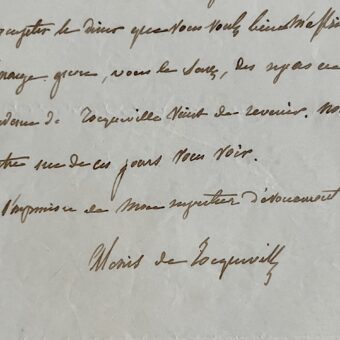 accepter le diner que vous voulez bien m'offrir
mange guere, vous le savez, des repas en
Madame de Tocqueville vient de revenir. No
un de ces jours vous voir.
l'expression de mon respectueux dévouement
Alexis de Tocqueville